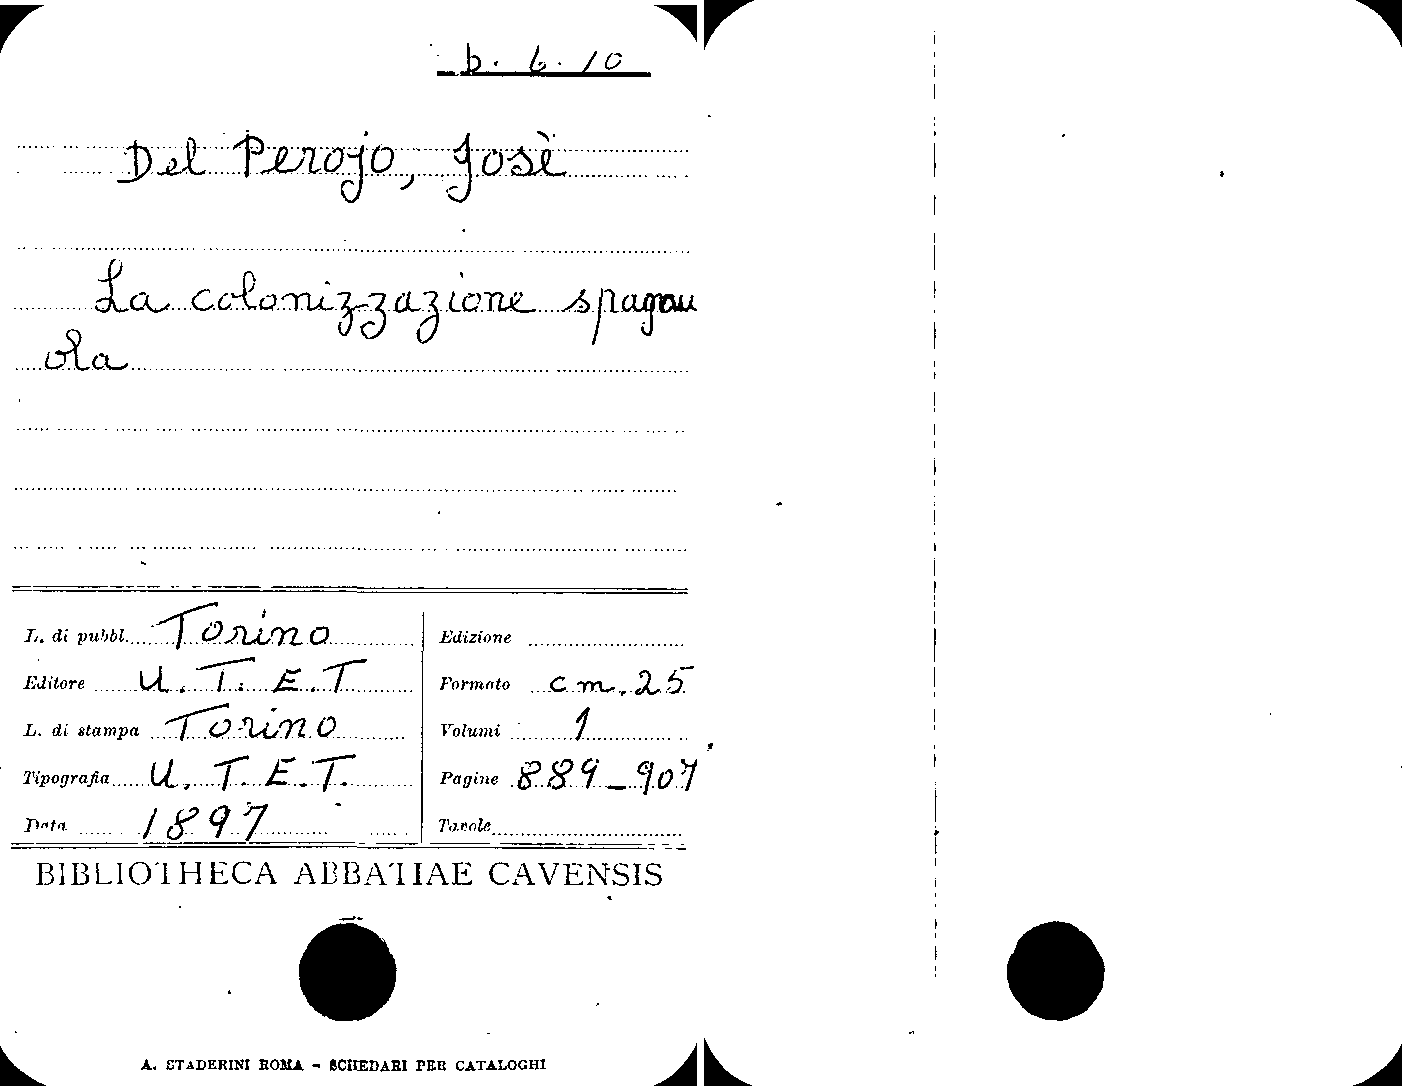 b. 6. 10
Del Perojo, Josè
La colonizzazione spagnu
ola
L. di pubbl. Torino
Editore U. T. E. T
L. di stampa Torino
Tipografia U. T. E. T.
Data 1897
Edizione
Formato cm. 25
Volumi 1
Pagine 889-907
Tavole
BIBLIOTHECA ABBATIAE CAVENSIS
A. STADERINI ROMA - SCHEDARI PER CATALOGHI